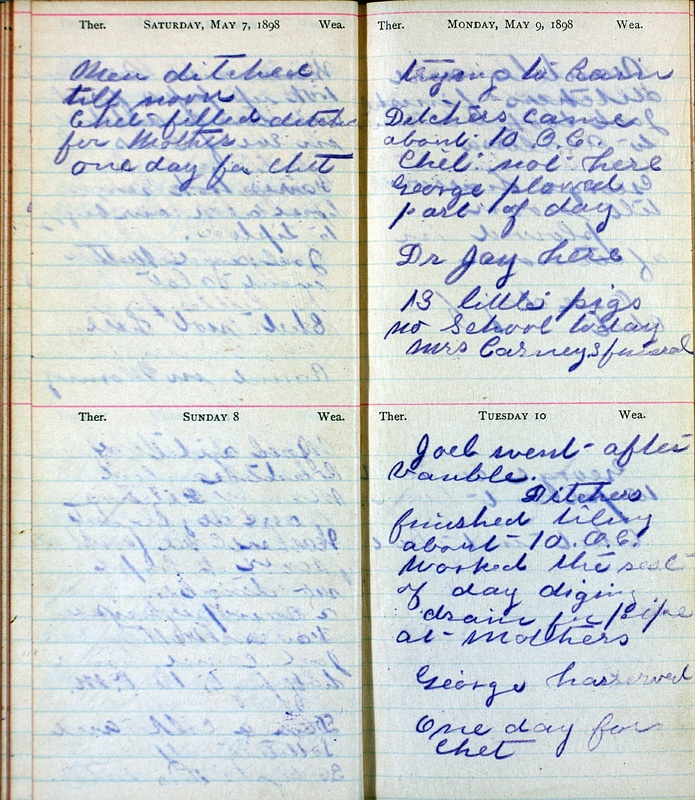 Ther. SATURDAY, MAY 7, 1898 Wea.
Men ditched
till noon
Chet filled ditches
for Mother
one day for Chet
Ther. SUNDAY 8 Wea.
Ther. MONDAY, MAY 9, 1898 Wea.
trying to rain
Ditchers came
about 10 O.C.
Chet not here
George plowed
part of day
Dr Jay here
13 little pigs
no school today
Mrs Carneys funeral
Ther. TUESDAY 10 Wea.
Joeb went after
Ditchers
finished tiling
about 10 O.C.
Worked the rest
of day diging
drain for pipe
at Mothers
George harrowed
One day for
Chet